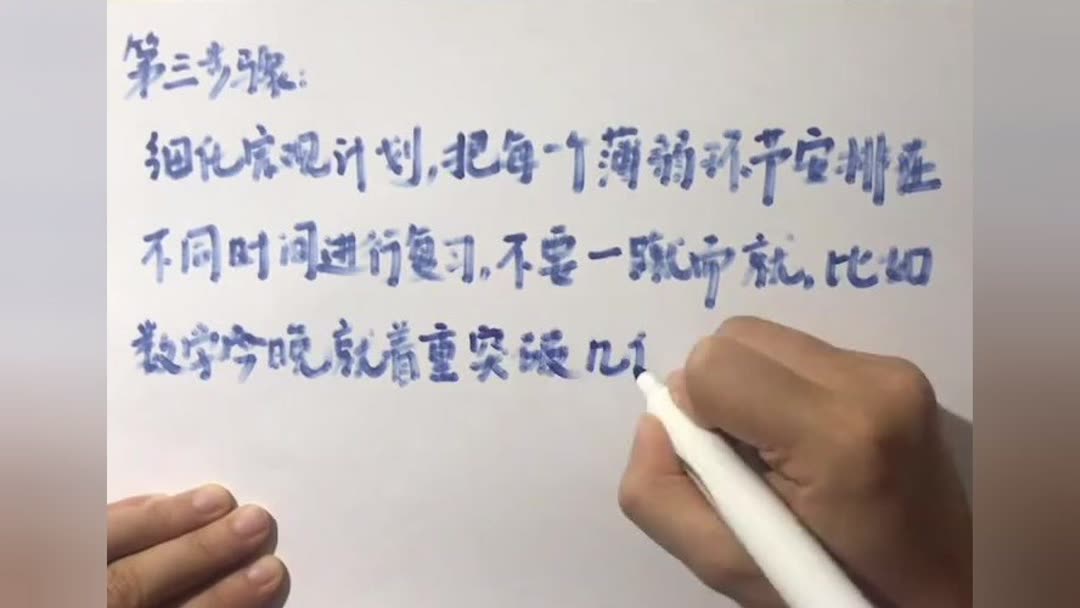 第三步骤:
细化宏观计划,把每一个薄弱环节安排在
不同时间进行复习,不要一蹴而就,比如
数学今晚就着重突破几